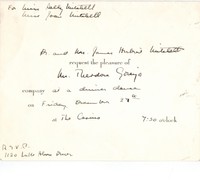 For Miss Sally Mitchell
Miss Joan Mitchell
and Mrs. James Herbert Mitchell
request the pleasure of
Mr. Theodore
company at a dinner dance
on Friday December 27th
at The Casino
7:30 o'clock
R.S.V.P.
1120 Lake Shore Drive